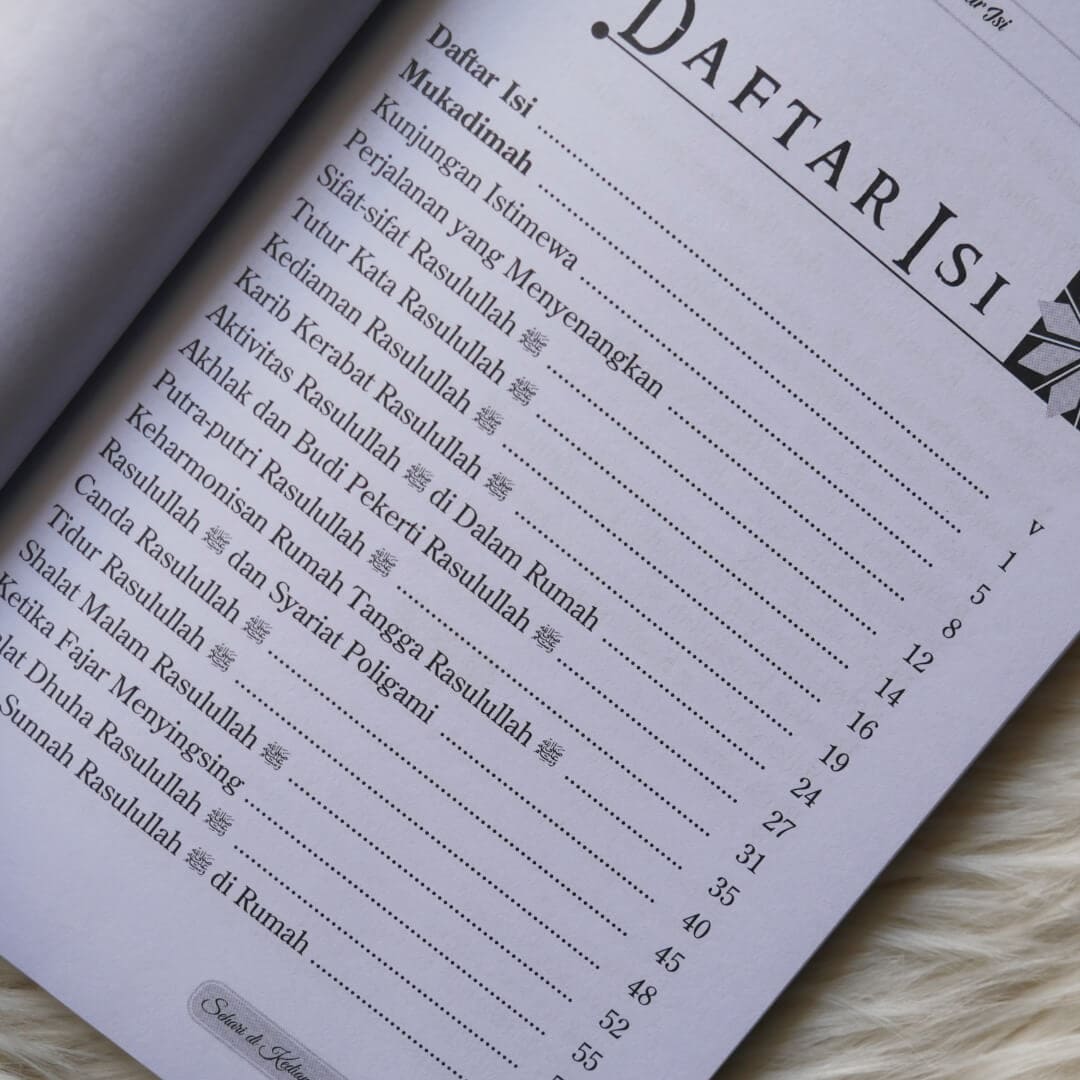 Isi
DAFTAR ISI
Daftar Isi ........ v
Mukadimah ........ 1
Kunjungan Istimewa ........ 5
Perjalanan yang Menyenangkan ........ 8
Sifat-sifat Rasulullah ﷺ ........ 12
Tutur Kata Rasulullah ﷺ ........ 14
Kediaman Rasulullah ﷺ ........ 16
Karib Kerabat Rasulullah ﷺ ........ 19
Aktivitas Rasulullah ﷺ di Dalam Rumah ........ 24
Akhlak dan Budi Pekerti Rasulullah ﷺ ........ 27
Putra-putri Rasulullah ﷺ ........ 31
Keharmonisan Rumah Tangga Rasulullah ﷺ ........ 35
Rasulullah ﷺ dan Syariat Poligami ........ 40
Canda Rasulullah ﷺ ........ 45
Tidur Rasulullah ﷺ ........ 48
Shalat Malam Rasulullah ﷺ ........ 52
Ketika Fajar Menyingsing ........ 55
Dhuha Rasulullah ﷺ ........
Sunnah Rasulullah ﷺ di Rumah ........
Sehari di